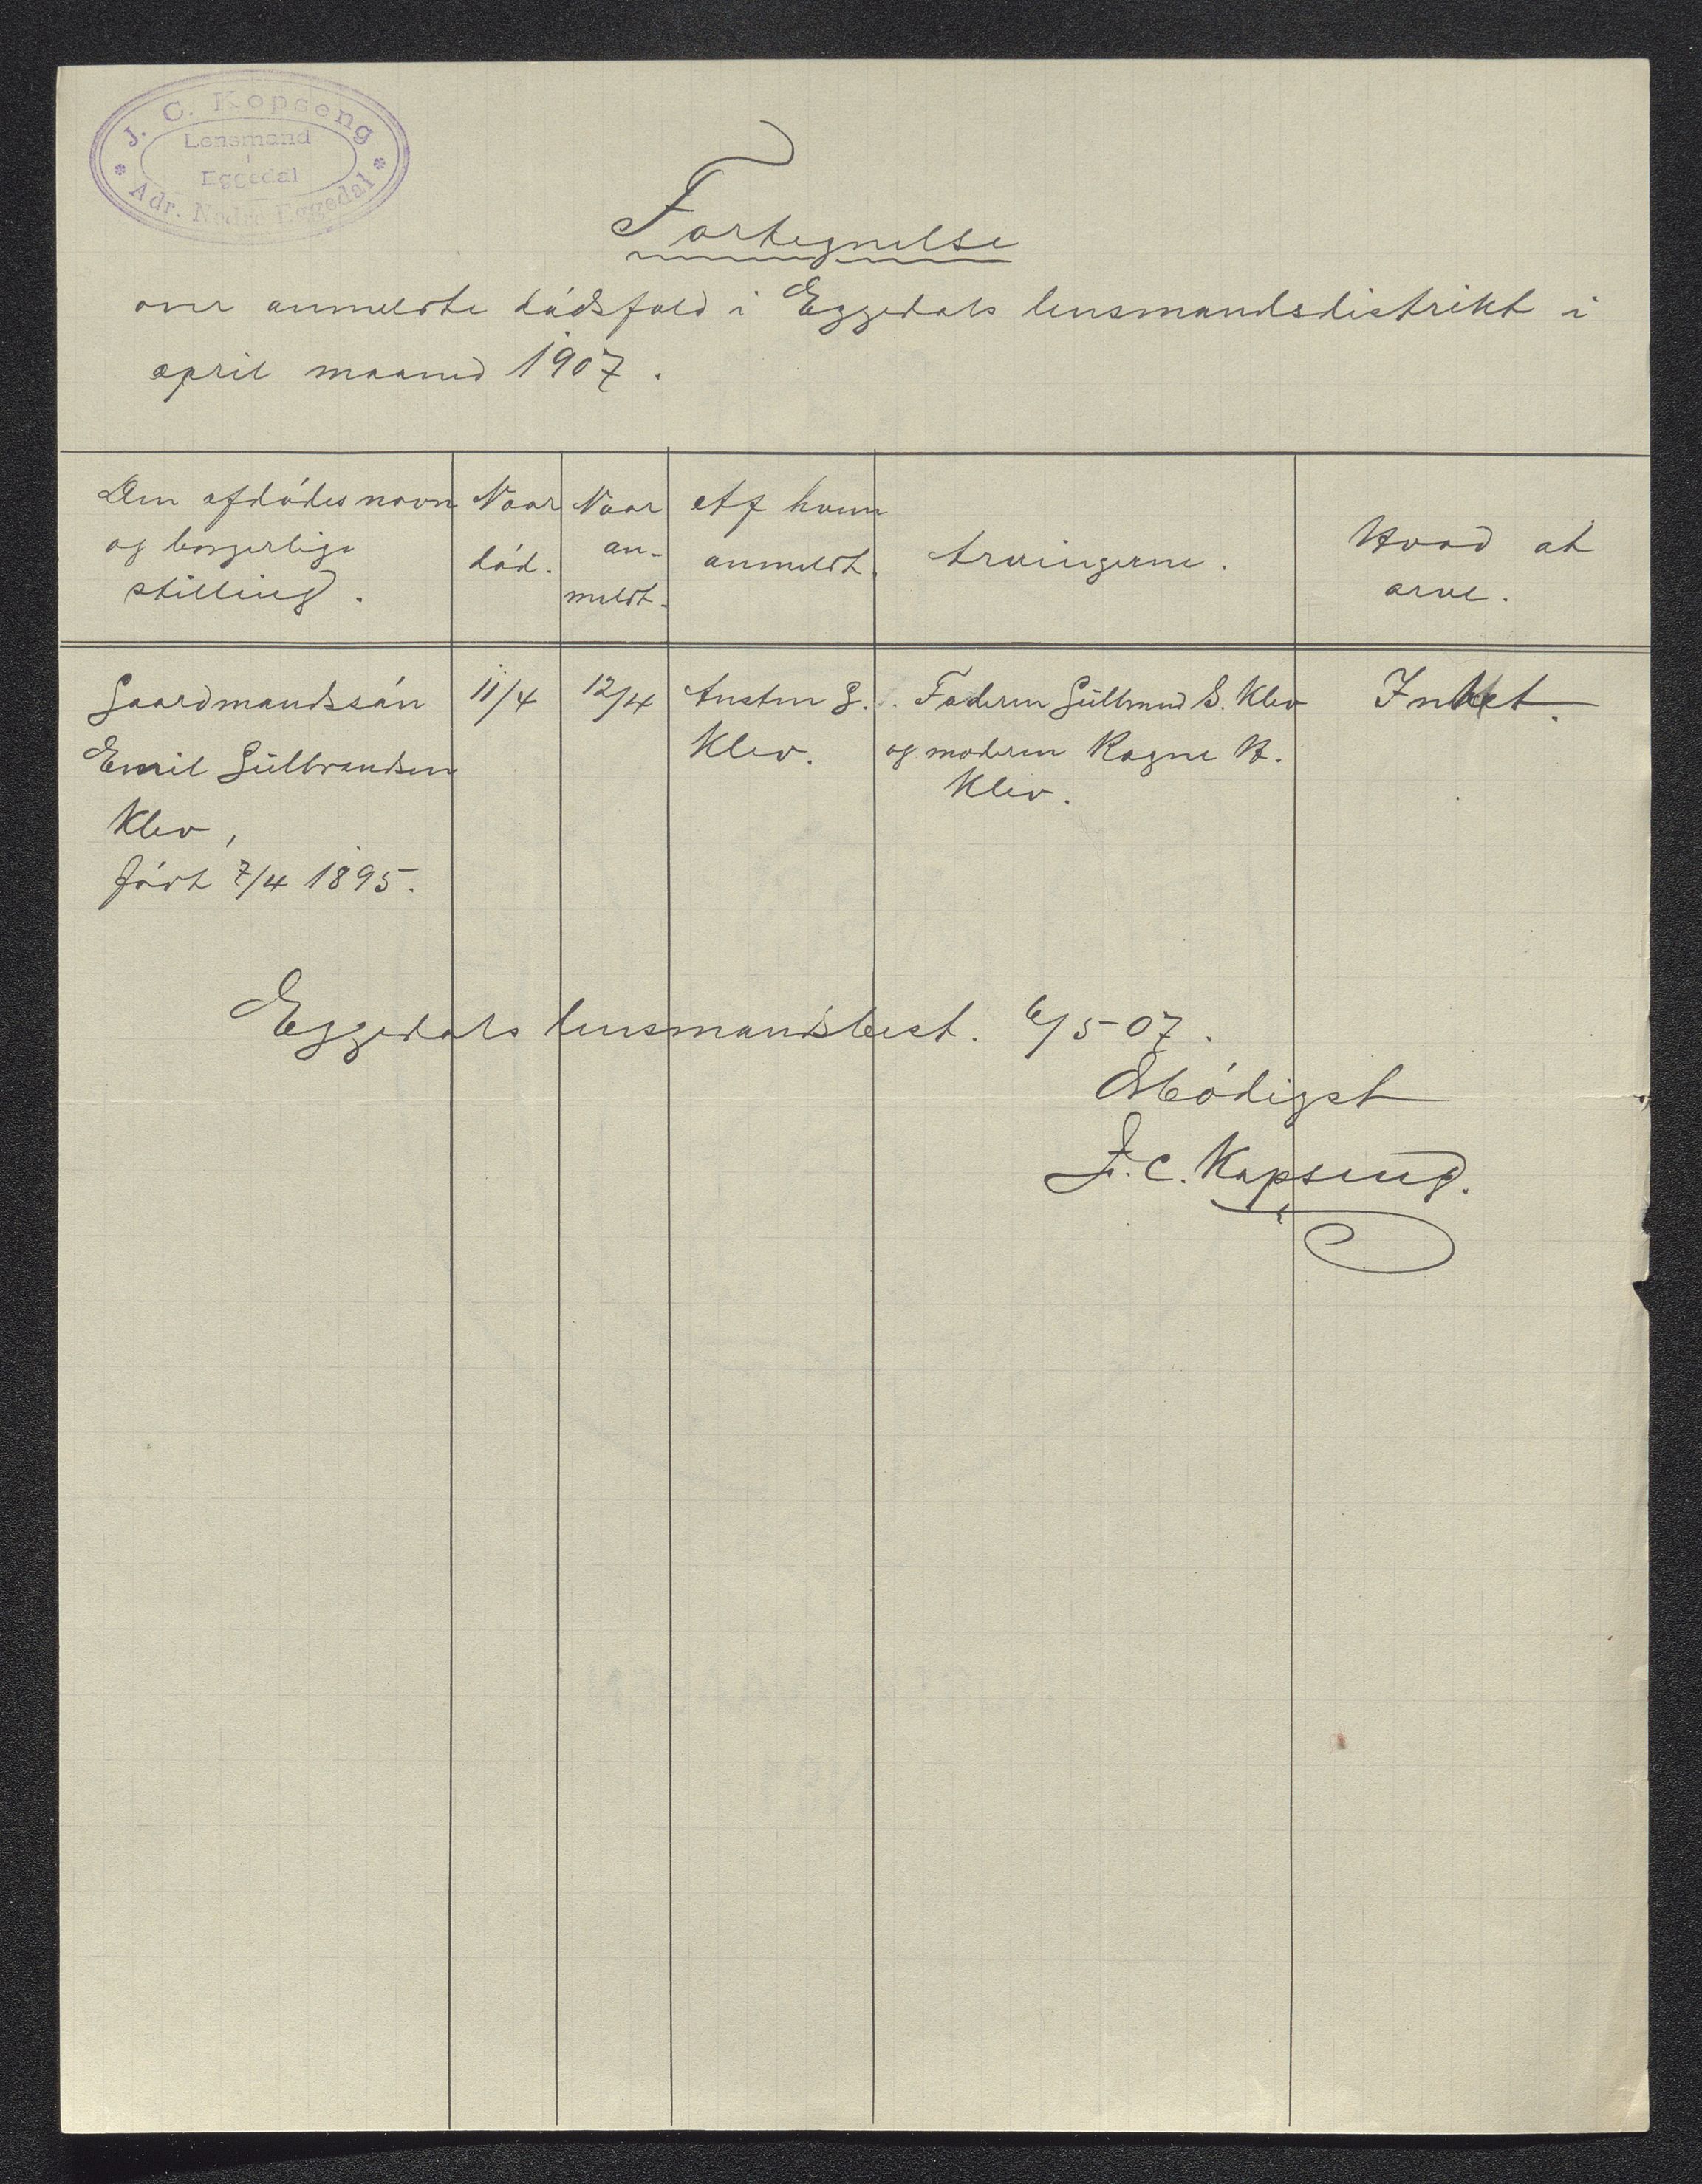 J. C. Kopseng
Lensmand
i
Eggedal
Adr. Nedre Eggedal
Fortegnelse
over anmeldte dödsfald i Eggedals lensmandsdistrikt i
april maaned 1907.
Den afdödes navn
og borgerlige
stilling.
Naar
död.
Naar
an-
meldt.
Af hvem
anmeldt.
Arvingerne.
Hvad at
arve.
Gaardmandssön
Emil Gulbrandsen
Klev,
født 7/4 1895.
11/4
12/4
Ansten G.
Klev.
Faderen Gulbrand S. Klev
og moderen Ragne H.
Klev.
Intet.
Eggedals lensmandsbest. 6/5-07.
Ærbödigst
J. C. Kopseng.